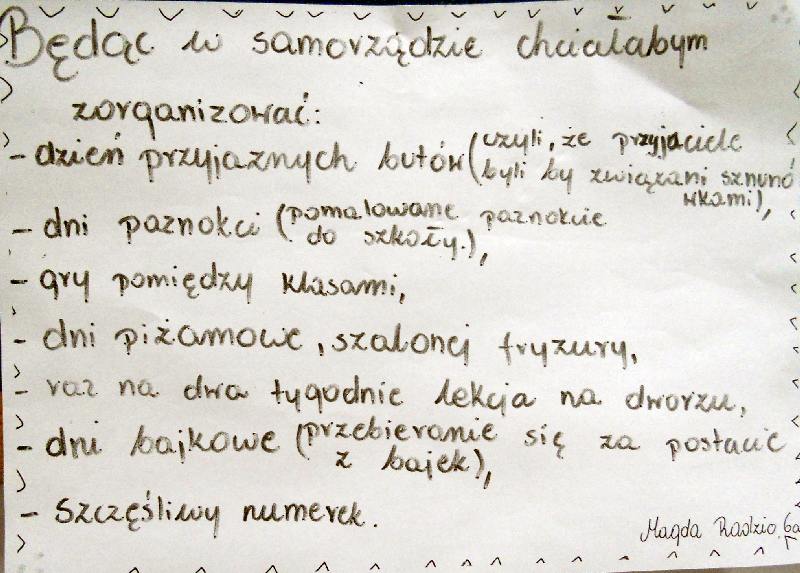 Będąc w samorządzie chciałabym
zorganizować:
- dzień przyjaznych butów (czyli, że przyjaciele
byli by związani sznuró
wkami),
- dni paznokci (pomalowane paznokcie
do szkoły.),
- gry pomiędzy klasami,
- dni piżamowe, szalonej fryzury,
- raz na dwa tygodnie lekcja na dworzu,
- dni bajkowe (przebieranie się za postacie
z bajek),
- Szczęśliwy numerek.
Magda Radzio 6a